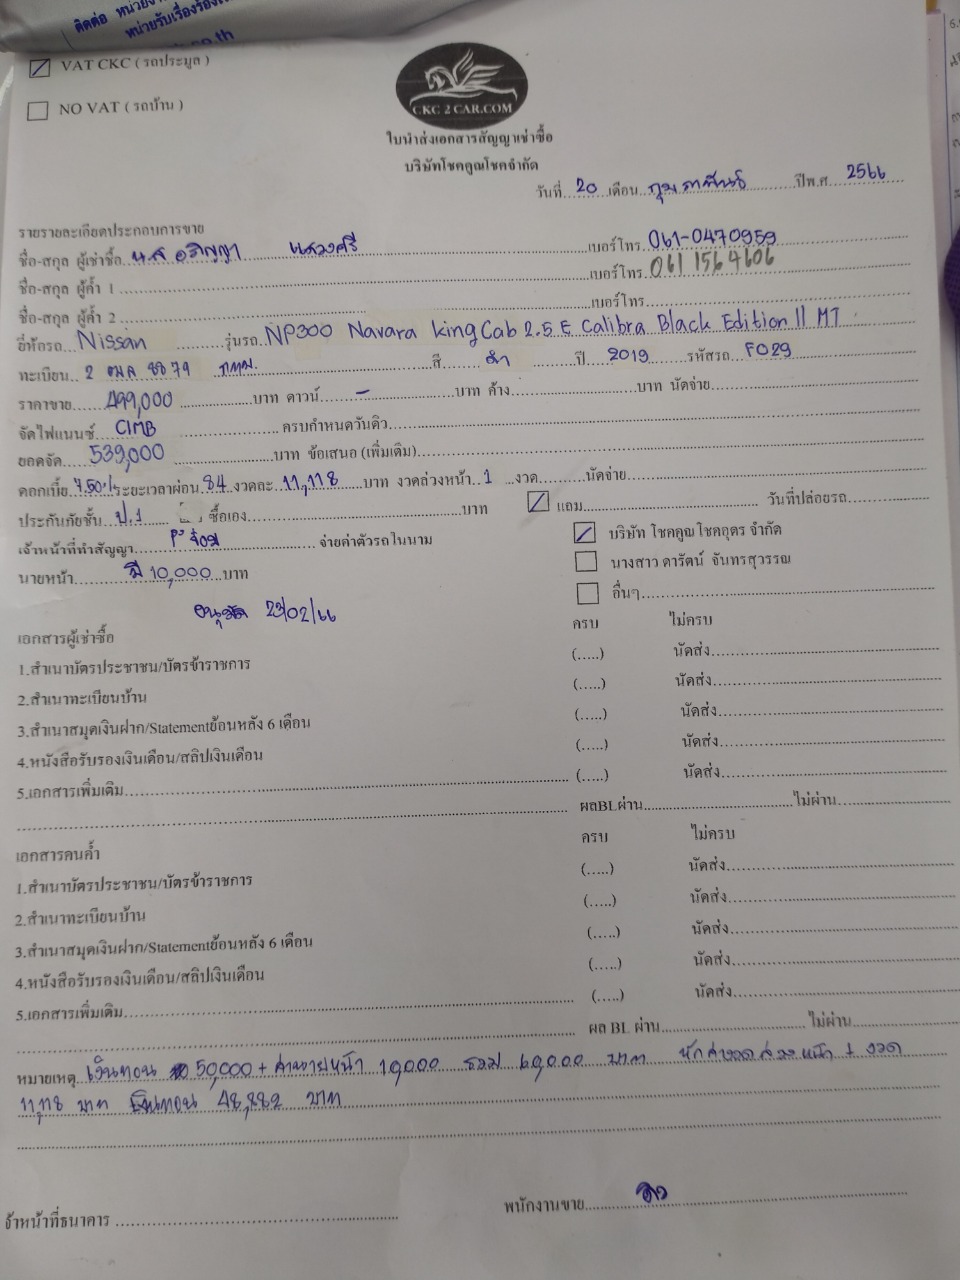 ติดต่อ หน่วย
หน่วยรับเรื่องร้อง
VAT CKC ( รถประมูล )
NO VAT ( รถบ้าน )
CKC 2 CAR.COM
ใบนำส่งเอกสารสัญญาเช่าซื้อ
บริษัทโชคคูณโชคจำกัด
วันที่ 20 เดือน กุมภาพันธ์ ปีพ.ศ. 2566
รายรายละเอียดประกอบการขาย
ชื่อ-สกุล ผู้เช่าซื้อ น.ส อภิญญา แสวงศรี เบอร์โทร 061-0470959
ชื่อ-สกุล ผู้ค้ำ 1 เบอร์โทร 061 1564606
ชื่อ-สกุล ผู้ค้ำ 2 เบอร์โทร
ยี่ห้อรถ Nissan รุ่นรถ NP300 Navara King Cab 2.5 E Calibra Black Edition II MT
ทะเบียน 2 ฒฉ 8879 กทม. สี ดำ ปี 2019 รหัสรถ F029
ราคาขาย 499,000 บาท ดาวน์ - บาท ค้าง บาท นัดจ่าย
จัดไฟแนนซ์ CIMB ครบกำหนดวันคิว
ยอดจัด 539,000 บาท ข้อเสนอ (เพิ่มเติม)
ดอกเบี้ย 7.50% ระยะเวลาผ่อน 84 งวดละ 11,118 บาท งวดล่วงหน้า 1 งวด นัดจ่าย
ประกันภัยชั้น ป.1 ซื้อเอง บาท แถม วันที่ปล่อยรถ
เจ้าหน้าที่ทำสัญญา จ่ายค่าตัวรถในนาม บริษัท โชคคูณโชคอุดร จำกัด
นางสาว ดารัตน์ จันทรสุวรรณ
นายหน้า มี 10,000 บาท อื่นๆ
อนุมัติ 23/02/66
เอกสารผู้เช่าซื้อ ครบ ไม่ครบ
1.สำเนาบัตรประชาชน/บัตรข้าราชการ (.....) นัดส่ง
2.สำเนาทะเบียนบ้าน (.....) นัดส่ง
3.สำเนาสมุดเงินฝาก/Statementย้อนหลัง 6 เดือน (.....) นัดส่ง
4.หนังสือรับรองเงินเดือน/สลิปเงินเดือน (.....) นัดส่ง
5.เอกสารเพิ่มเติม (.....) นัดส่ง
ผลBLผ่าน ไม่ผ่าน
เอกสารคนค้ำ ครบ ไม่ครบ
1.สำเนาบัตรประชาชน/บัตรข้าราชการ (.....) นัดส่ง
2.สำเนาทะเบียนบ้าน (.....) นัดส่ง
3.สำเนาสมุดเงินฝาก/Statementย้อนหลัง 6 เดือน (.....) นัดส่ง
4.หนังสือรับรองเงินเดือน/สลิปเงินเดือน (.....) นัดส่ง
5.เอกสารเพิ่มเติม (.....) นัดส่ง
ผล BL ผ่าน ไม่ผ่าน
หมายเหตุ เงินทอน 50,000 + ค่านายหน้า 10,000 รวม 60,000 บาท หักค่างวดล่วงหน้า 1 งวด
11,118 บาท เงินทอน 48,882 บาท
จ้าหน้าที่ธนาคาร พนักงานขาย